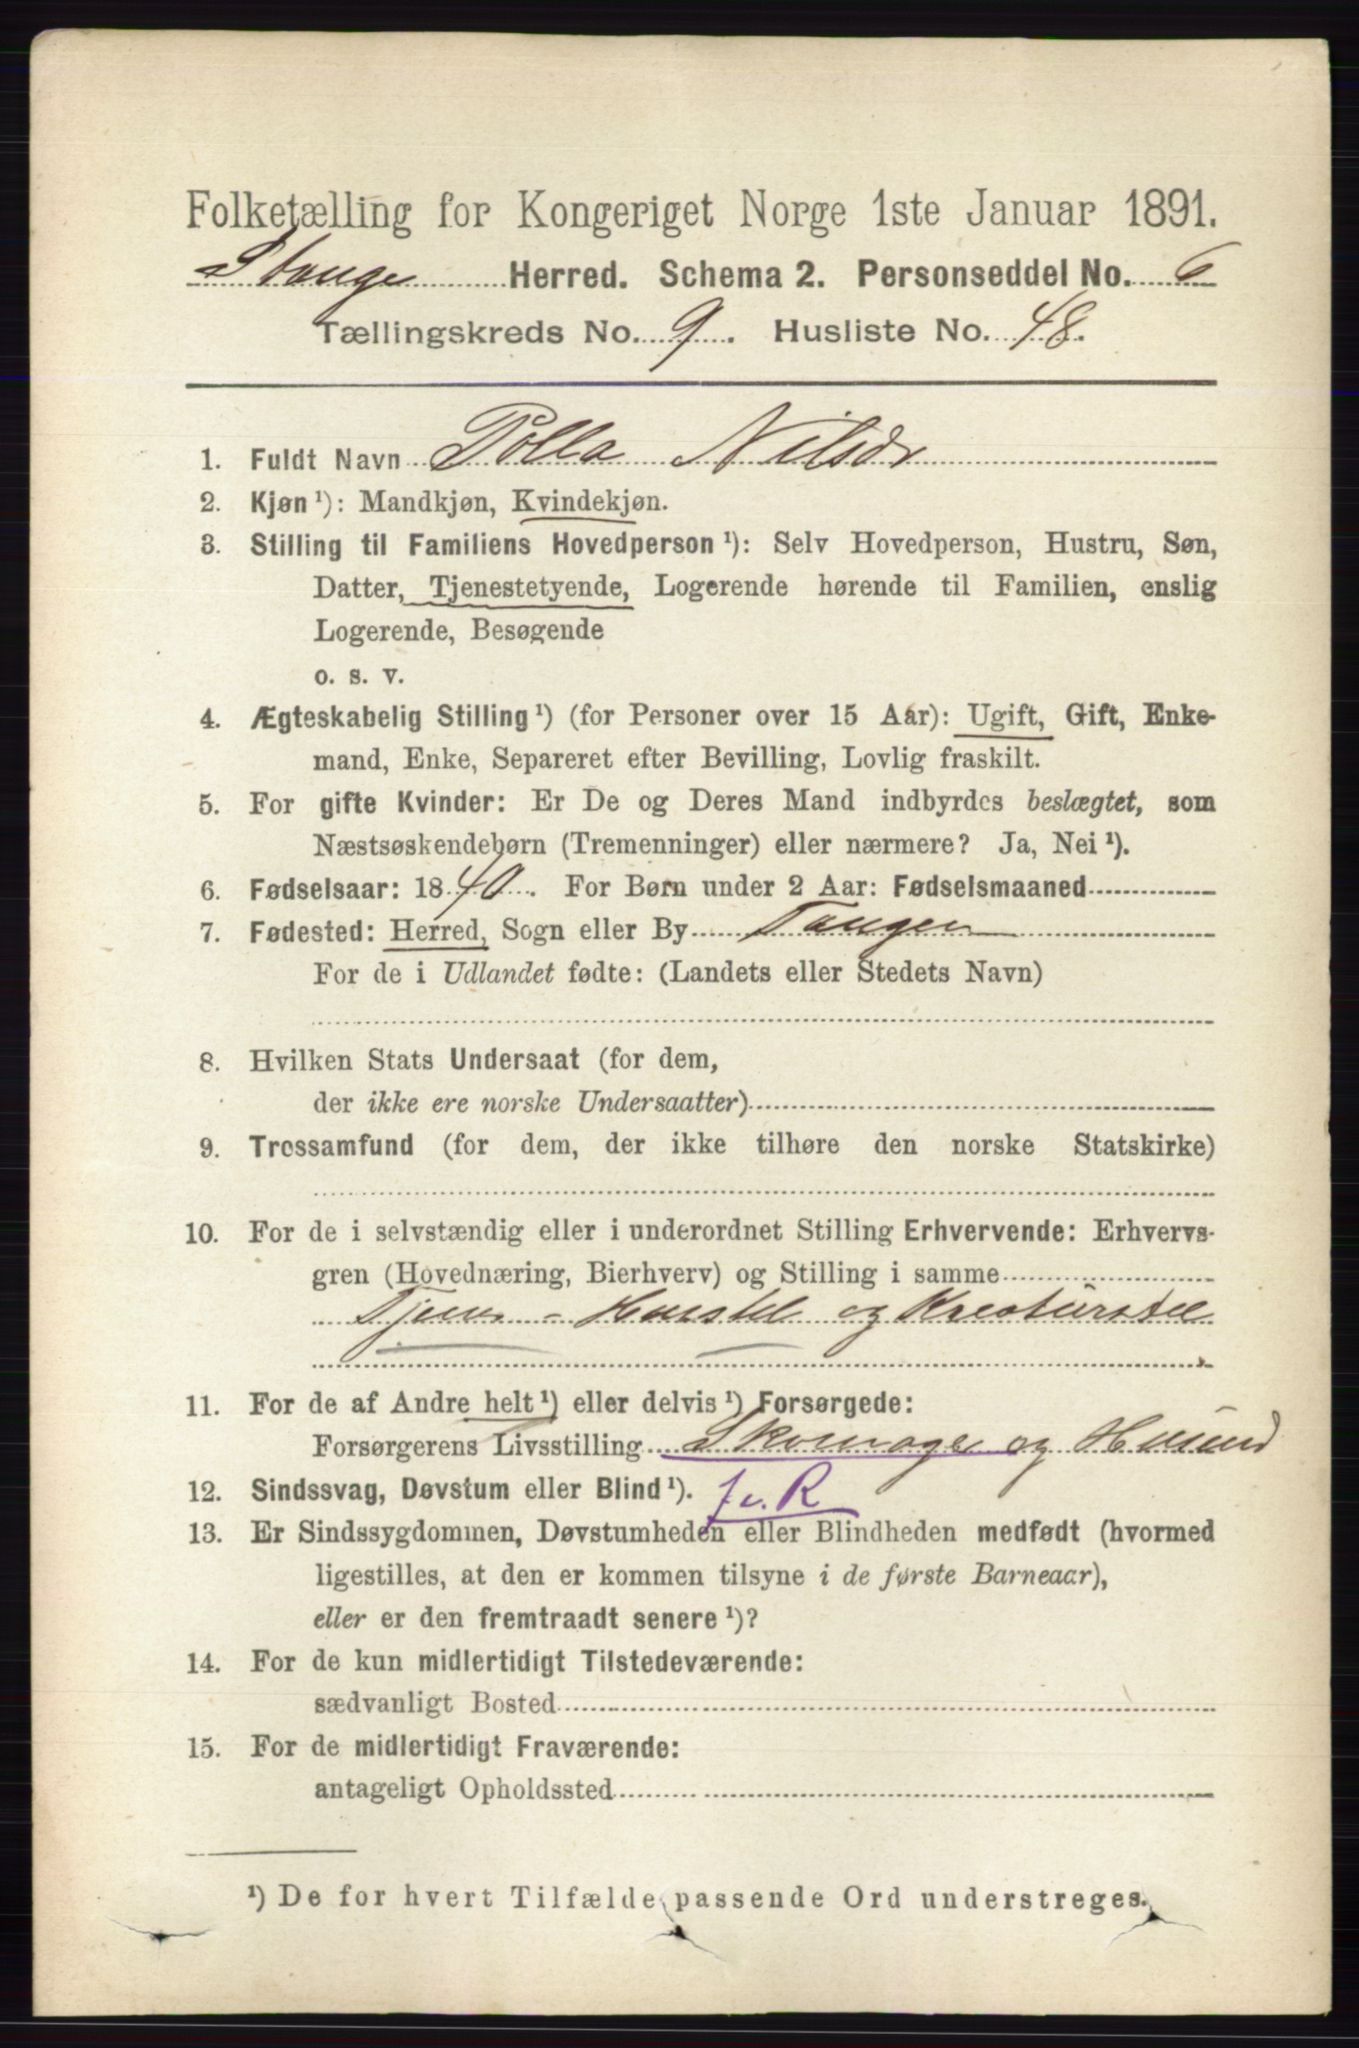 Folketælling for Kongeriget Norge 1ste Januar 1891.
Stange Herred. Schema 2. Personseddel No. 6
Tællingskreds No. 9. Husliste No. 48.
1. Fuldt Navn Polla Nilsdr
2. Kjøn ¹): Mandkjøn, Kvindekjøn.
3. Stilling til Familiens Hovedperson ¹): Selv Hovedperson, Hustru, Søn,
Datter, Tjenestetyende, Logerende hørende til Familien, enslig
Logerende, Besøgende
o. s. v.
4. Ægteskabelig Stilling ¹) (for Personer over 15 Aar): Ugift, Gift, Enke-
mand, Enke, Separeret efter Bevilling, Lovlig fraskilt.
5. For gifte Kvinder: Er De og Deres Mand indbyrdes beslægtet, som
Næstsøskendebørn (Tremenninger) eller nærmere? Ja, Nei ¹).
6. Fødselsaar: 1840. For Børn under 2 Aar: Fødselsmaaned
7. Fødested: Herred, Sogn eller By Tangen
For de i Udlandet fødte: (Landets eller Stedets Navn)
8. Hvilken Stats Undersaat (for dem,
der ikke ere norske Undersaatter)
9. Trossamfund (for dem, der ikke tilhøre den norske Statskirke)
10. For de i selvstændig eller i underordnet Stilling Erhvervende: Erhvervs-
gren (Hovednæring, Bierhverv) og Stilling i samme
Tjen. - Husstel og Kreaturstel
11. For de af Andre helt ¹) eller delvis ¹) Forsørgede:
Forsørgerens Livsstilling Skomager og Husmd
12. Sindssvag, Døvstum eller Blind ¹). f.v.R
13. Er Sindssygdommen, Døvstumheden eller Blindheden medfødt (hvormed
ligestilles, at den er kommen tilsyne i de første Barneaar),
eller er den fremtraadt senere ¹)?
14. For de kun midlertidigt Tilstedeværende:
sædvanligt Bosted
15. For de midlertidigt Fraværende:
antageligt Opholdssted
¹) De for hvert Tilfælde passende Ord understreges.